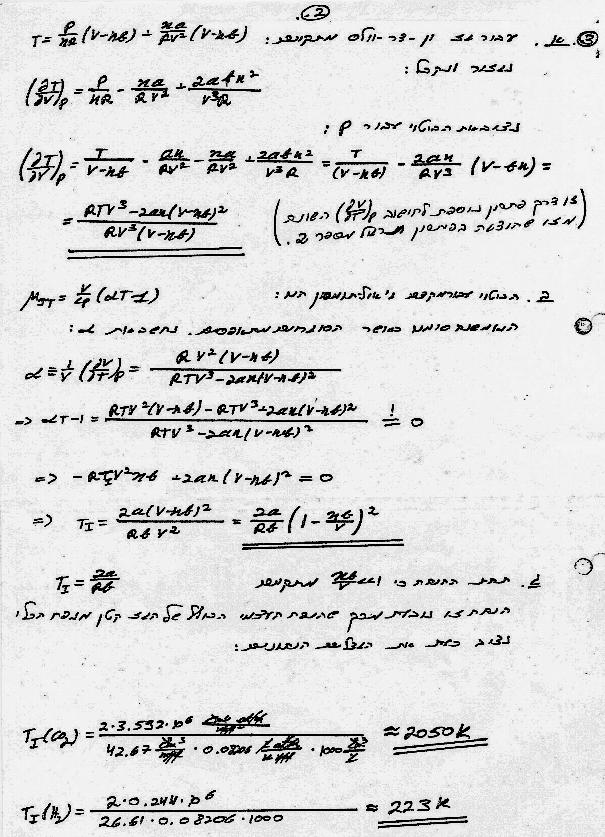 .2
③ .א. עבור גז ון-דר-ולס מתקיים: T = P/nR (V-nb) + na/RV² (V-nb)
נגזור ונקבל:
(∂T/∂V)_P = P/nR - na/RV² + 2abn²/V³R
נציב את הביטוי עבור P:
(∂T/∂V)_P = T/(V-nb) - an/RV² - na/RV² + 2abn²/V³R = T/(V-nb) - 2an/RV³ (V-bn) =
= (RTV³ - 2an(V-nb)²) / (RV³(V-nb))
(זו דרך פתרון נוספת לחישוב (∂V/∂T)_P השונה
מזו שהוצגה בפתרון תרגיל מספר 2.)
ב. הביטוי עבור מקדם ג'אול-תומסון הוא: μ_JT = V/C_P (αT-1)
α:
α ≡ 1/V (∂V/∂T)_P = RV²(V-nb) / (RTV³ - 2an(V-nb)²)
=> αT-1 = (RTV²(V-nb) - RTV³ + 2an(V-nb)²) / (RTV³ - 2an(V-nb)²) =! 0
=> -RT_I V²nb + 2an(V-nb)² = 0
=> T_I = 2a(V-nb)² / RbV² = 2a/Rb (1 - nb/V)²
ג. תחת ההנחה כי nb/V <<1 מתקיים T_I = 2a/Rb
הנחה זו נובעת מכך שהנפח העצמי הכולל של הגז קטן מנפח הכלי
נציב כעת את הגדלים הנתונים:
T_I(CO₂) = 2·3.592·10⁶ / 42.67 · 0.08206 · 1000 ≈ 2050K
T_I(H₂) = 2·0.244·10⁶ / 26.61·0.08206·1000 ≈ 223K